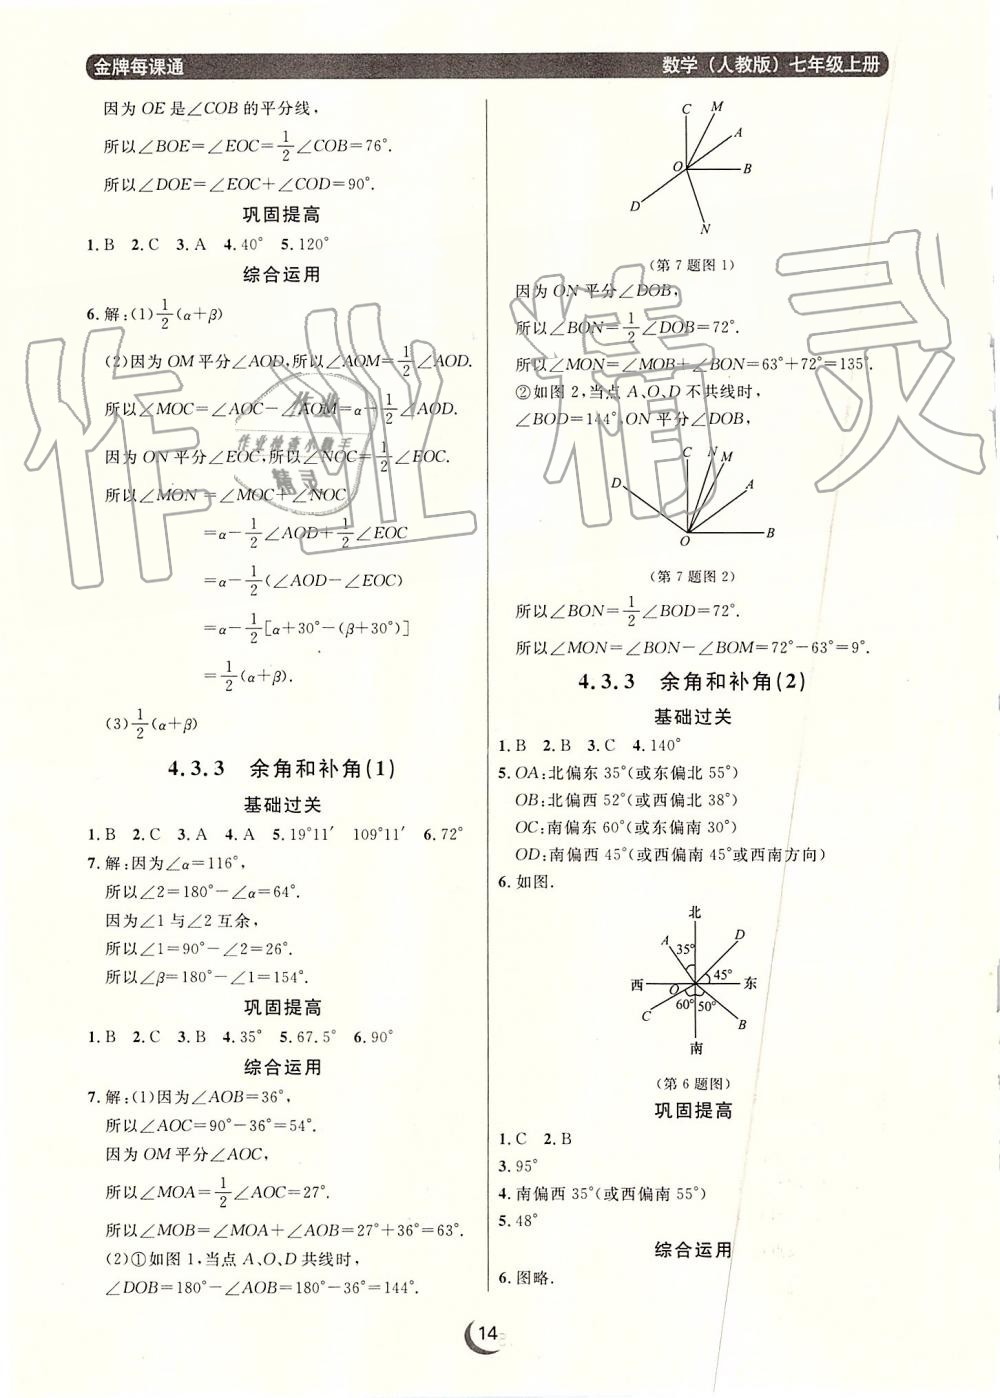 金牌每课通
数学（人教版）七年级上册
因为OE是∠COB的平分线，
所以∠BOE=∠EOC=1/2∠COB=76°.
所以∠DOE=∠EOC+∠COD=90°.
巩固提高
1.B 2.C 3.A 4.40° 5.120°
综合运用
6.解：(1)1/2(α+β)
(2)因为OM平分∠AOD，所以∠AOM=1/2∠AOD.
所以∠MOC=∠AOC-∠AOM=α-1/2∠AOD.
因为ON平分∠EOC，所以∠NOC=1/2∠EOC.
所以∠MON=∠MOC+∠NOC
=α-1/2∠AOD+1/2∠EOC
=α-1/2(∠AOD-∠EOC)
=α-1/2[α+30°-(β+30°)]
=1/2(α+β).
(3)1/2(α+β)
4.3.3 余角和补角(1)
基础过关
1.B 2.C 3.A 4.A 5.19°11′ 109°11′ 6.72°
7.解：因为∠α=116°，
所以∠2=180°-∠α=64°.
因为∠1与∠2互余，
所以∠1=90°-∠2=26°.
所以∠β=180°-∠1=154°.
巩固提高
1.B 2.C 3.B 4.35° 5.67.5° 6.90°
综合运用
7.解：(1)因为∠AOB=36°，
所以∠AOC=90°-36°=54°.
因为OM平分∠AOC，
所以∠MOA=1/2∠AOC=27°.
所以∠MOB=∠MOA+∠AOB=27°+36°=63°.
(2)①如图1，当点A、O、D共线时，
∠DOB=180°-∠AOB=180°-36°=144°.
C M A O B D N
(第7题图1)
因为ON平分∠DOB，
所以∠BON=1/2∠DOB=72°.
所以∠MON=∠MOB+∠BON=63°+72°=135°.
②如图2，当点A、O、D不共线时，
∠BOD=144°，ON平分∠DOB，
C N M D A B O
(第7题图2)
所以∠BON=1/2∠BOD=72°.
所以∠MON=∠BON-∠BOM=72°-63°=9°.
4.3.3 余角和补角(2)
基础过关
1.B 2.B 3.C 4.140°
5.OA：北偏东35°(或东偏北55°)
OB：北偏西52°(或西偏北38°)
OC：南偏东60°(或东偏南30°)
OD：南偏西45°(或西偏南45°或西南方向)
6.如图.
北
A 35° D
西 O 45° 东
C 60° 50° B
南
(第6题图)
巩固提高
1.C 2.B
3.95°
4.南偏西35°(或西偏南55°)
5.48°
综合运用
6.图略.
14
作业精灵
作业
作业检查小帮手
精灵